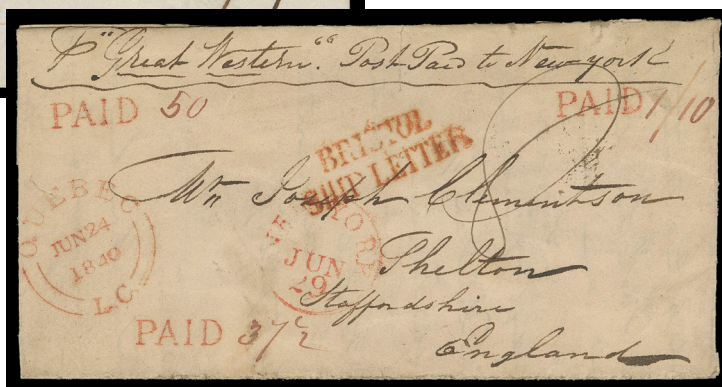 P "Great Western". Post Paid to New York
PAID 50
PAID 1/10
BRISTOL
SHIP LETTER
QUEBEC
JUN 24
1840
L.C.
Mr Joseph Clementson
NEW YORK
JUN
29
8
Shelton
Staffordshire
England
PAID 37½